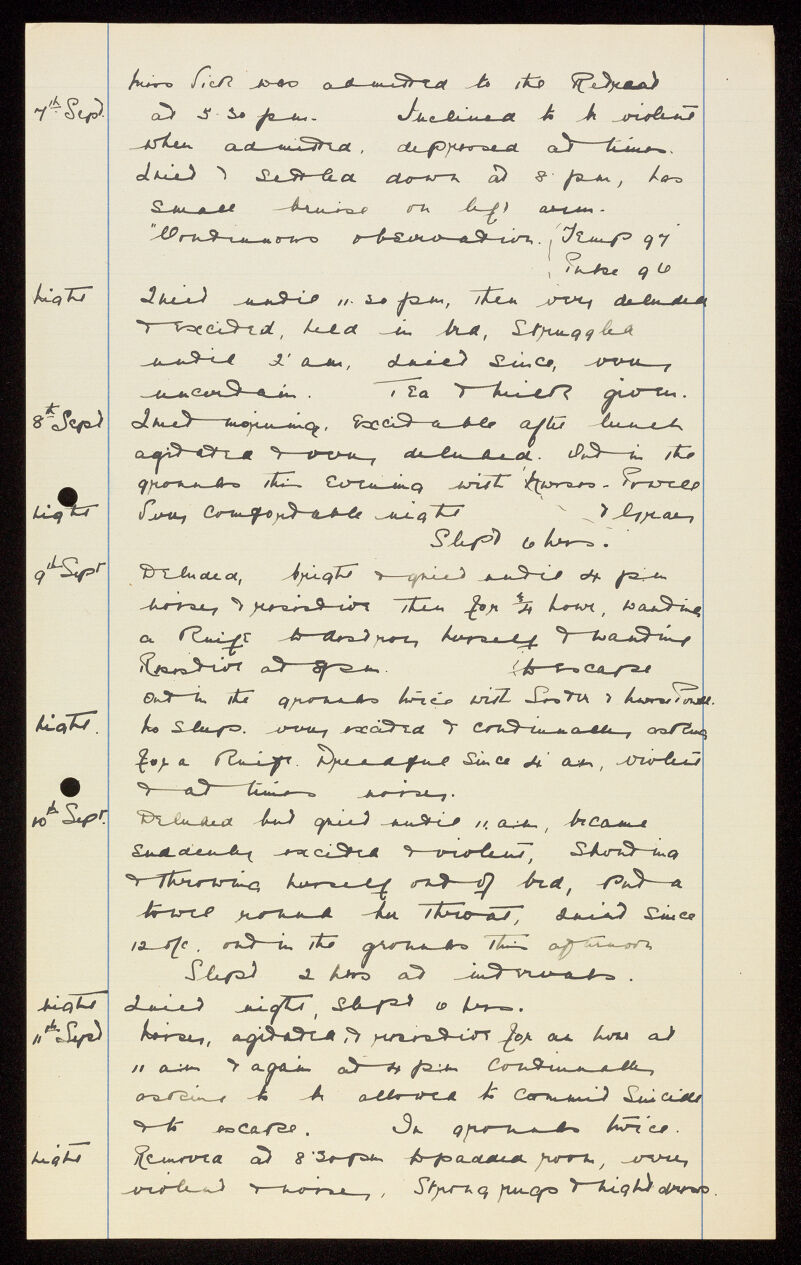 Miss Sick was admitted to the Retreat
7th Sept. at 5.30 pm. Inclined to be violent
when admitted, depressed at times.
Quiet & settled down at 8 pm, has
small bruise on left arm.
"Continuous observation. Temp 97
Pulse 96
Night Quiet until 11.30 pm, then very deluded
& excited, held in bed, struggled
until 2 am, quiet since, very
uncertain. Tea & milk given.
8th Sept Quiet morning, excitable after lunch
agitated & very deluded. Out in the
grounds this evening with Nurses - Powell
Night Very comfortable night &
Slept 6 hrs.
9th Sept Deluded, bright & quiet until 4 pm
noisy & resistive then for 3/4 hour, wanting
a knife to destroy herself & wanting
Resistive at 8 pm. to escape
Out in the grounds twice with Sister & Nurse Powell.
Night. No sleep. very excited & continually asking
for a knife. Dreadful since 4 am, violent
& at times noisy.
10th Sept. Deluded but quiet until 11 a.m, became
suddenly excited & violent, shouting
& throwing herself out of bed, put a
towel round her throat, quiet since
12 o/c. out in the grounds this afternoon
Slept 2 hrs at intervals.
Night Quiet night, slept 6 hrs.
11th Sept Noisy, agitated, & resistive for an hour at
11 am & again at 4 pm continually
asking to be allowed to commit suicide
& to escape. In grounds twice.
Night Removed at 8.30 pm to padded room, very
violent & noisy. Strong rugs & night dress.